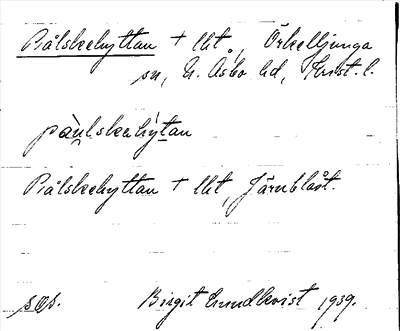 Pålskehyttan + lht., Örkelljunga
sn, N. Åsbo hd, Krist. l.
pàu̯lskehýtan
Pålskehyttan + lht, Järnblåst.
sgs. Birgit Lundkvist 1939.